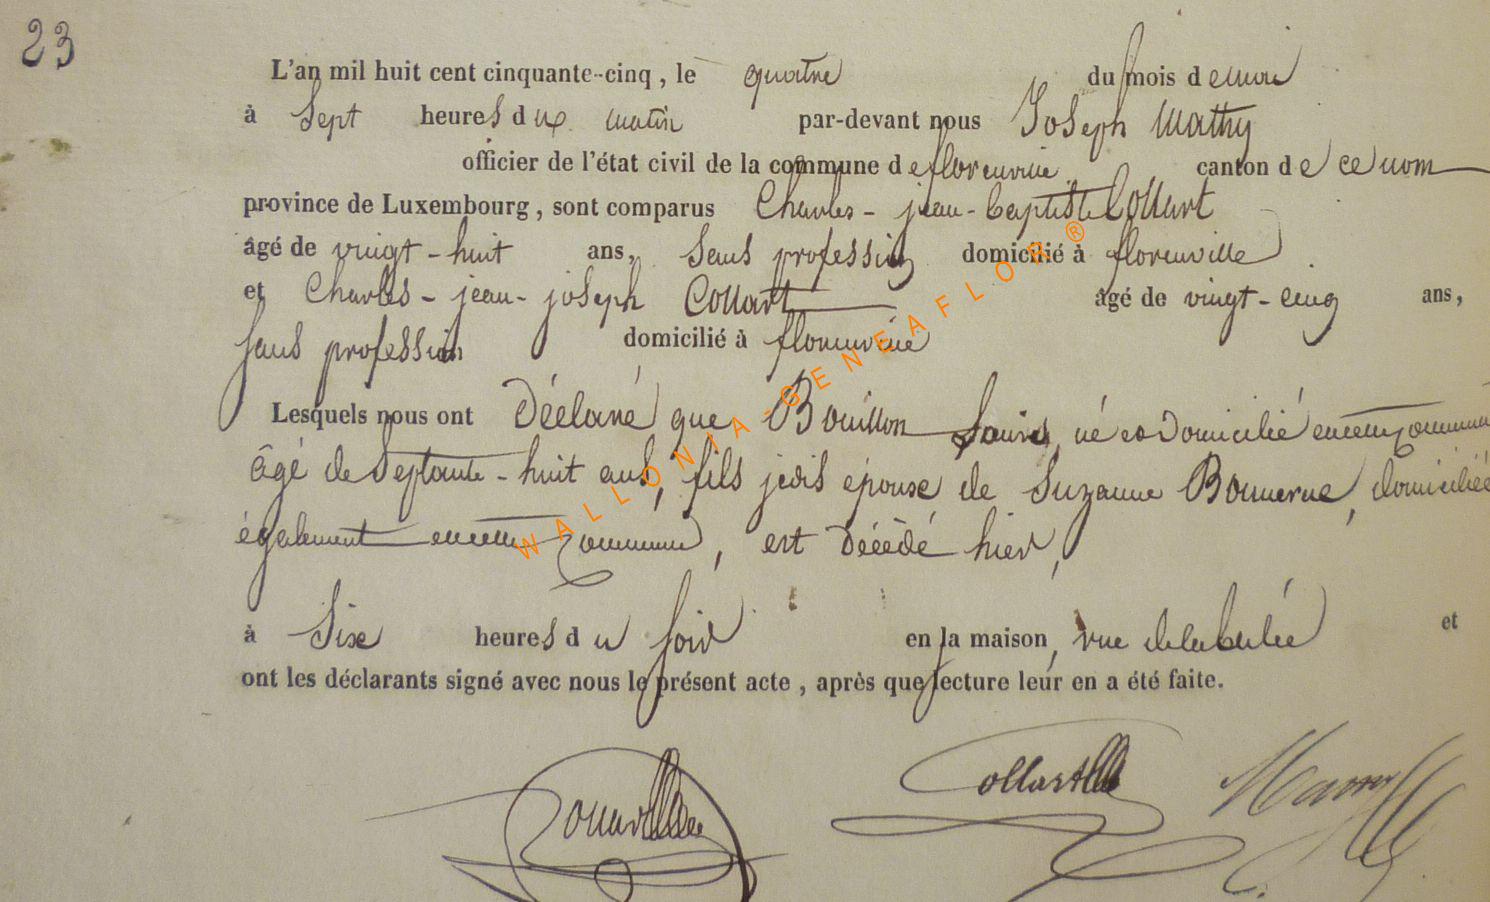 23
L'an mil huit cent cinquante-cinq, le quatre du mois de mai
à Sept heures du matin par-devant nous Joseph Mathy
officier de l'état civil de la commune de florenville canton de ce nom
province de Luxembourg, sont comparus Charles-jean-baptiste Collart
âgé de vingt-huit ans, Sans profession domicilié à florenville
et Charles-jean-joseph Collart âgé de vingt-cinq ans,
Sans profession domicilié à florenville
Lesquels nous ont Déclaré que Bouillon né et Domicilié en cette commune
âgé de Septante-huit ans, fils jadis épouse de Suzanne, domiciliée
également en cette commune, est Décédé hier,
à Six heures du soir en la maison, rue de la et
ont les déclarants signé avec nous le présent acte, après que lecture leur en a été faite.
Collart Collart
WALLONIA-GENEAFLOR®